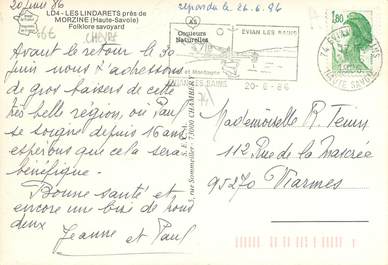 20 juin 86
répondu le 26.6.86
LD4 - LES LINDARETS près de
MORZINE (Haute-Savoie)
Folklore savoyard
CHEVRE
Couleurs
Naturelles
ÉVIAN LES BAINS
20-6-86
HAUTE SAVOIE
1,80
Avant le retour le 30
juin nous t'adressons
de gros baisers de cette
très belle région, où Paul
se soigne depuis 16 ans
espérons que cela sera
bénéfique.
Bonne santé et
encore une bise de nous
deux
Jeanne et Paul
Mademoiselle R.
112, Rue de la
95270 Viarmes
73000 CHAMBERY